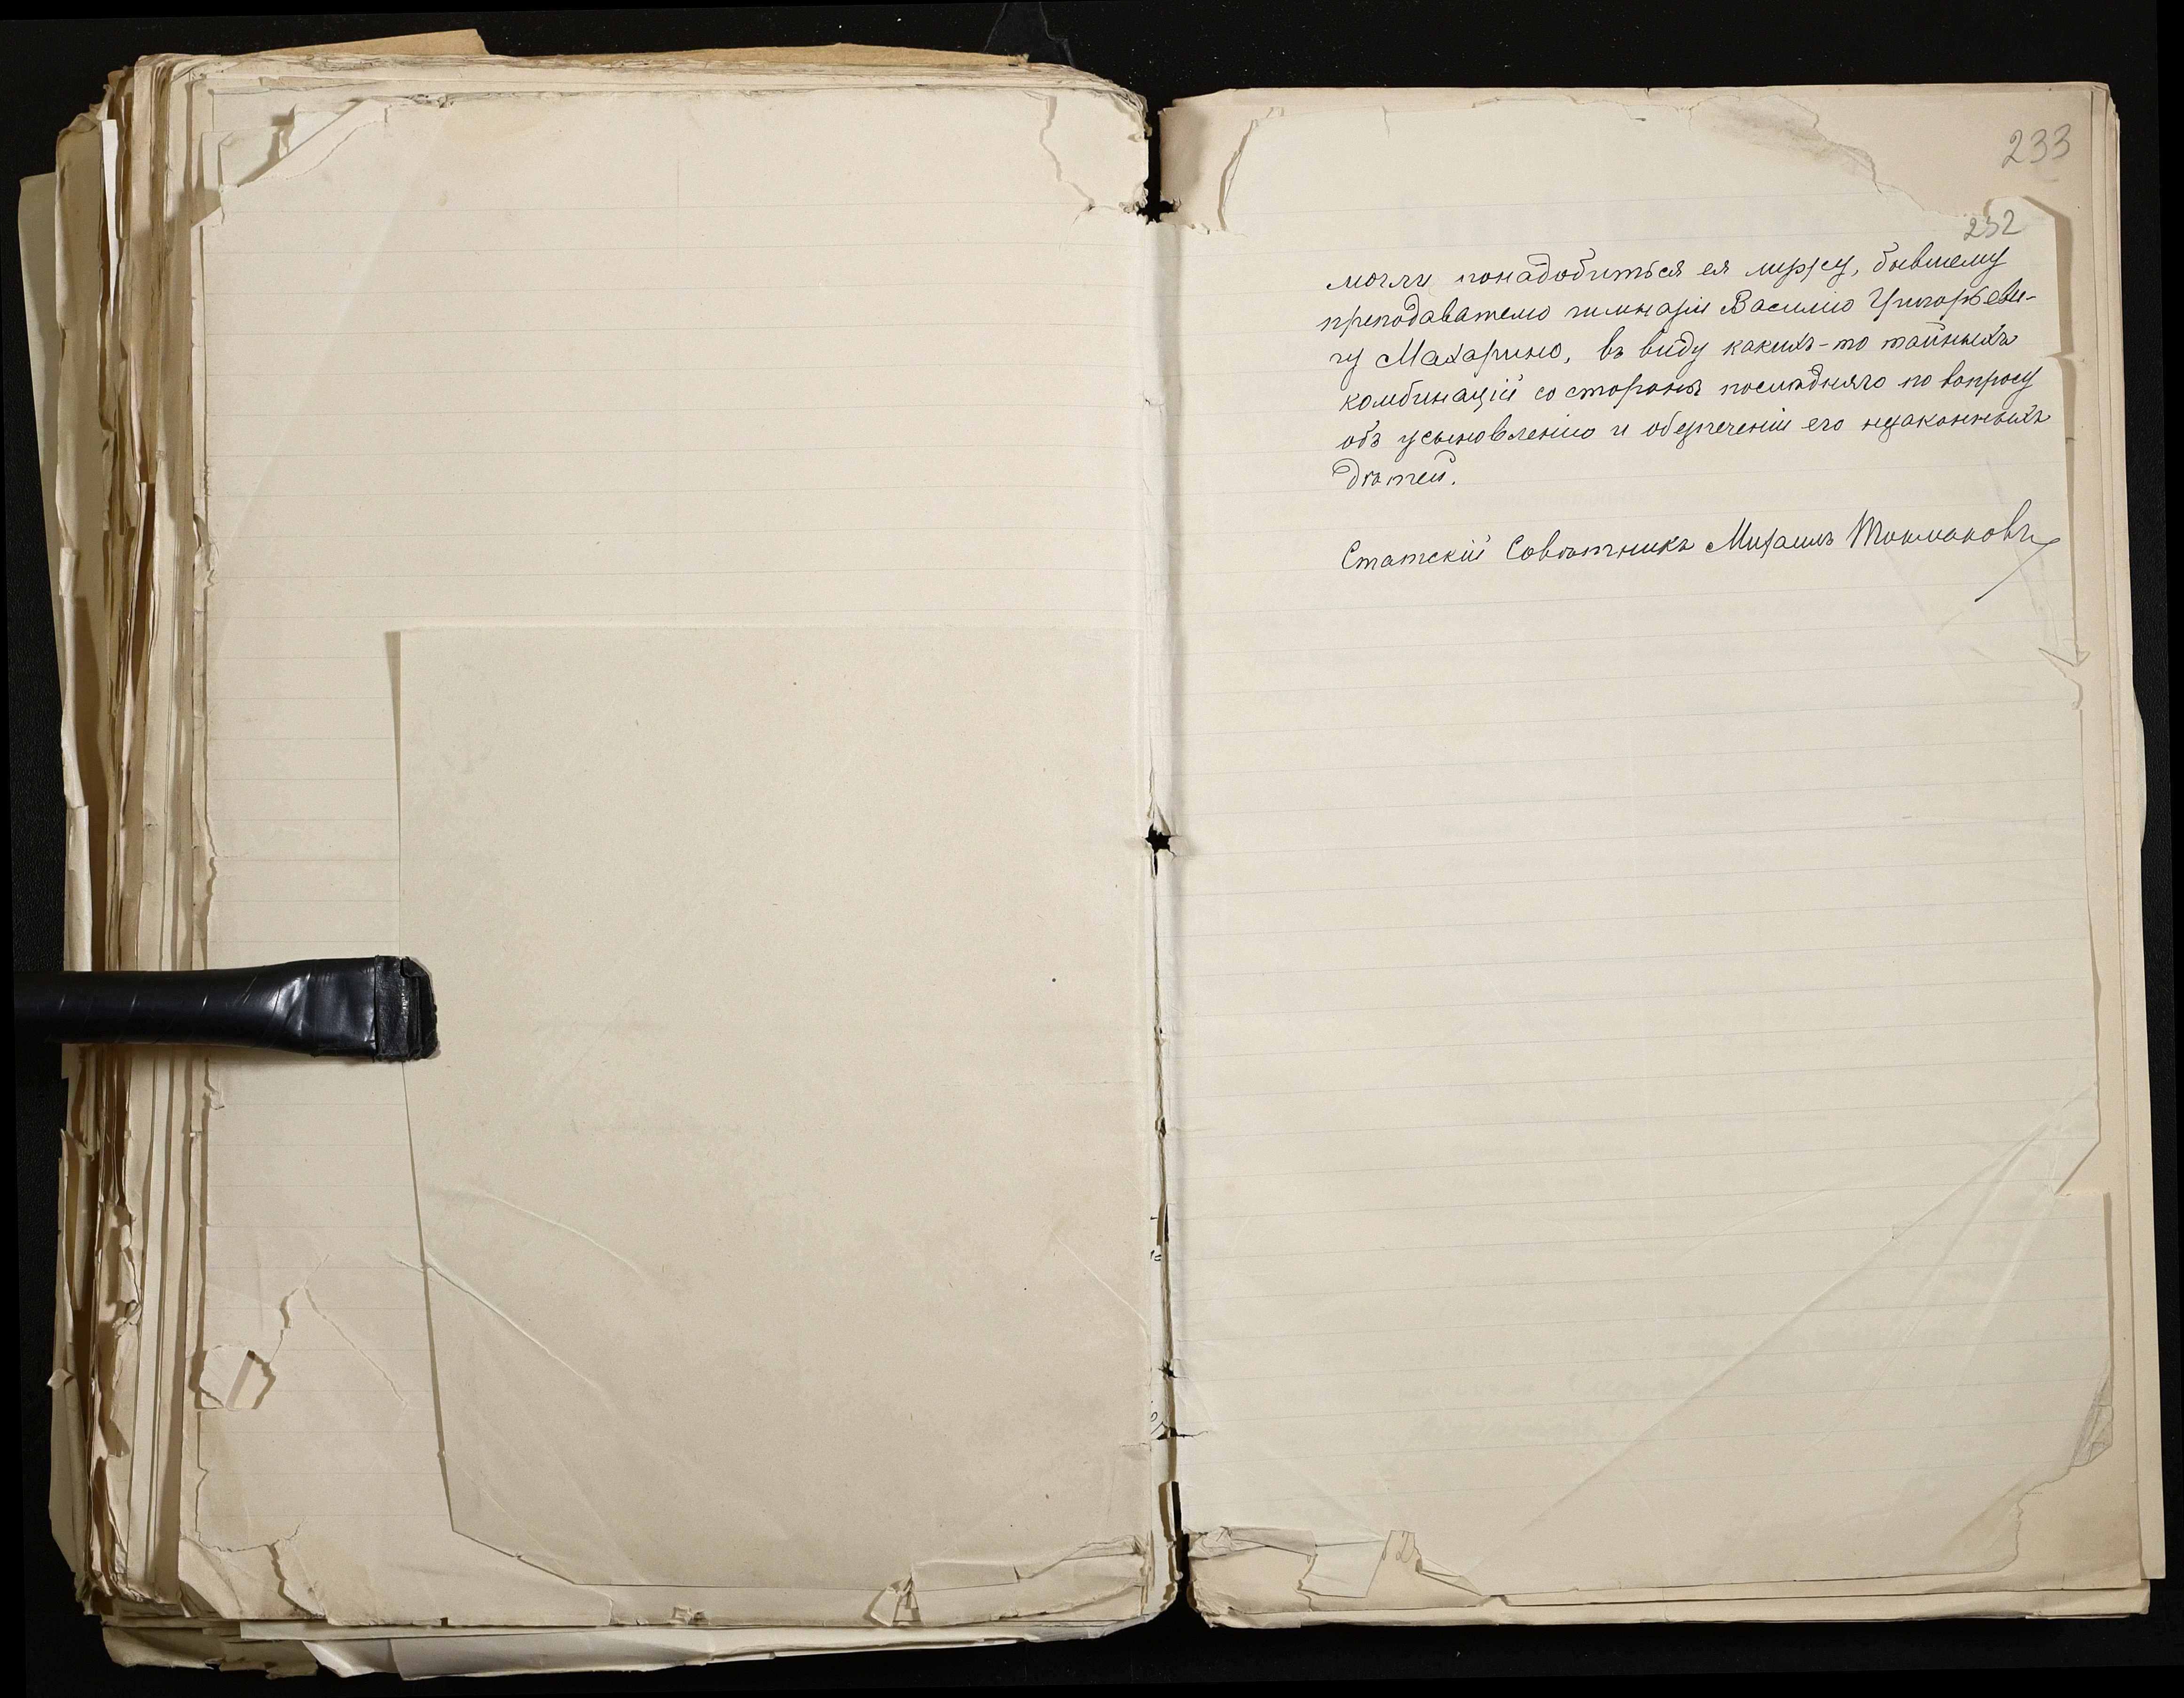 233
232
могли понадобиться ея мужу, бывшему
преподавателю гимназіи Василію Григорьеви-
чу Махарину, въ виду какихъ-то тайныхъ
комбинацій со стороны послѣдняго по вопросу
объ усыновленію и обезпеченіи его незаконныхъ
дѣтей.
Статскій Совѣтникъ Михаилъ Токмаковъ